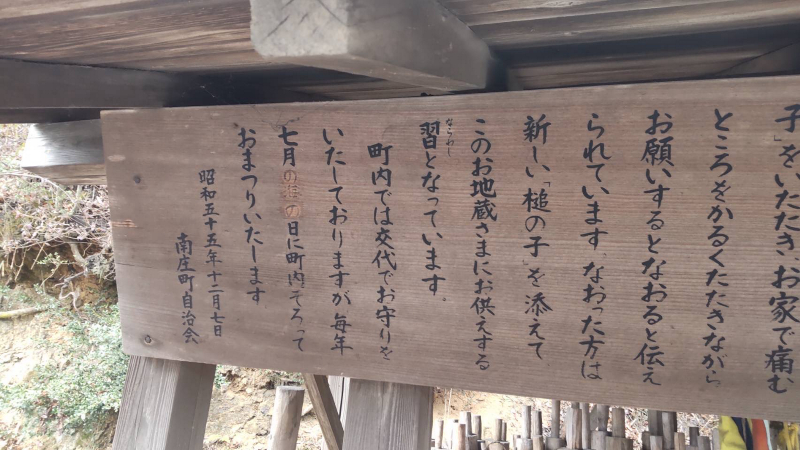 子」をいただき、お家で痛む
ところをかるくたたきながら
お願いするとなおると伝え
られています。なおった方は
新しい「槌の子」を添えて
このお地蔵さまにお供えする
習となっています。
ならわし
町内では交代でお守りを
いたしておりますが、毎年
七月の の日に町内そろって
おまつりいたします
昭和五十五年十二月七日
南庄町自治会